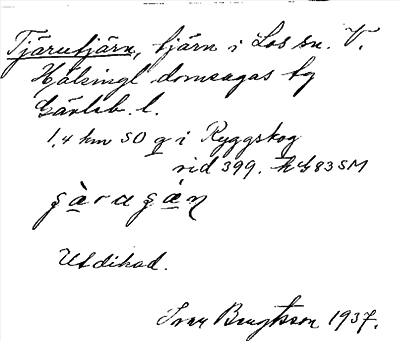 Tjärutjärn, tjärn i Los sn. V.
Hälsingl domsagas tg
Gävleb. l.
1,4 km SO g i Ryggskog
vid 399. hG83SM
Utdikad.
Ivar Bengtsson 1937.